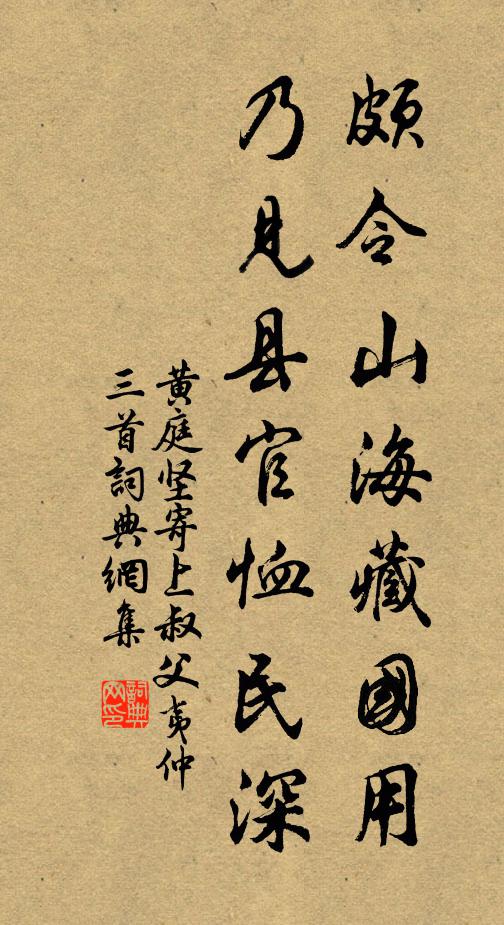 颇令山海藏國用
乃見县官恤民深
黄庭坚寄上叔父夷仲
三首詞典網集
詞典网印